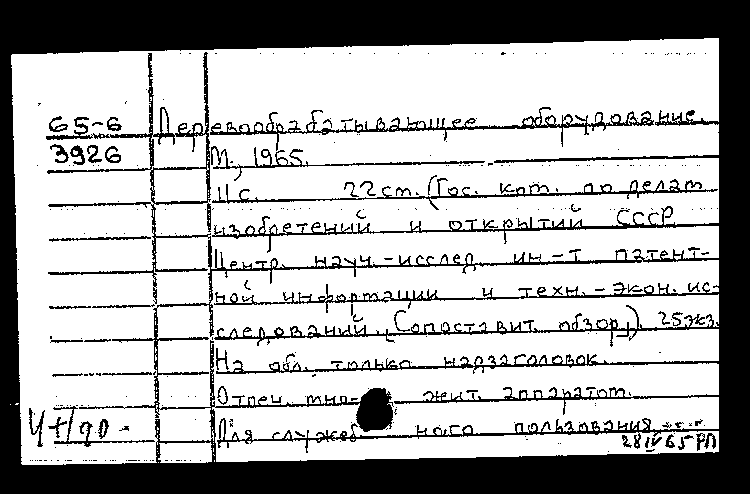 65-6 Деревообрабатывающее оборудование.
3926 М., 1965.
11с. 22см. (Гос. ком. по делам
изобретений и открытий СССР.
Центр. науч.-исслед. ин-т патент-
ной информации и техн.-экон. ис-
следований. (Сопоставит. обзор). 25экз.
На обл. только надзаголовок.
Отпеч. множит. аппаратом.
Для служебного пользования
28 IV 65 РП